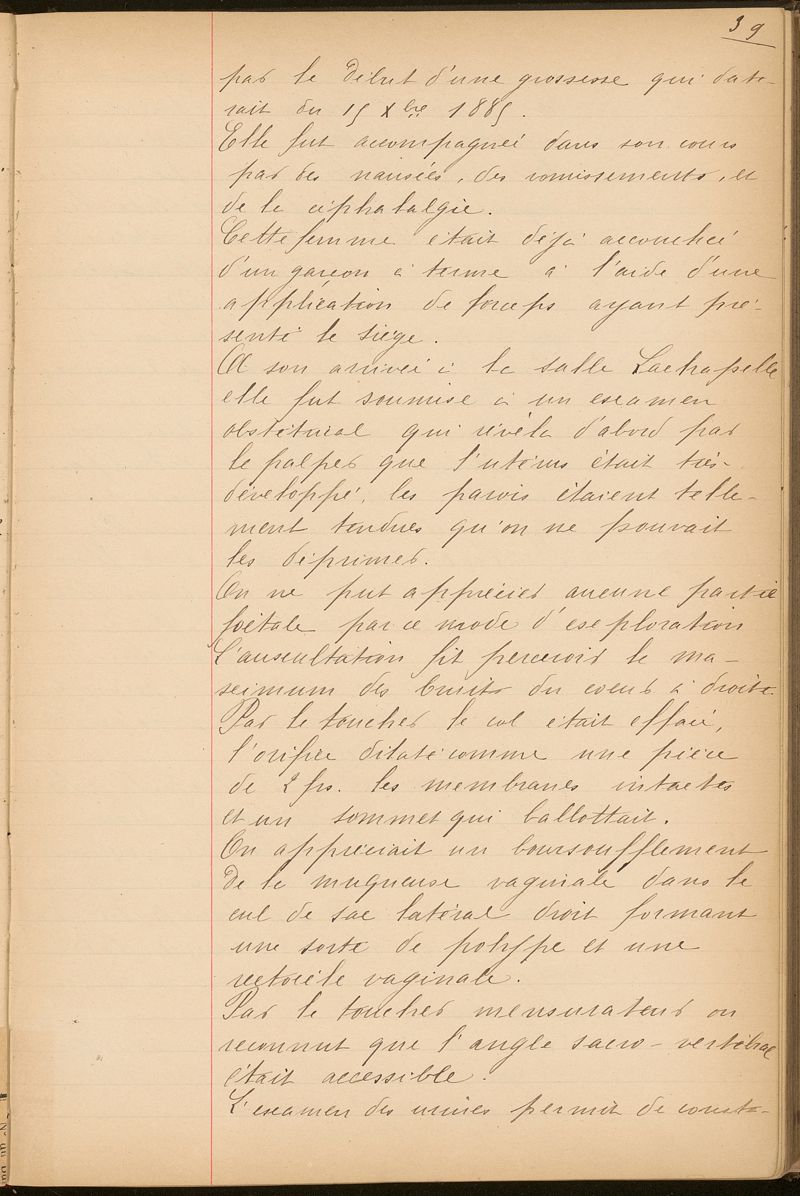 39
par le début d'une grossesse qui date-
rait du 15 Xbre 1885.
Elle fut accompagnée dans son cours
par des nausées, des vomissements, et
de la céphalalgie.
Cette femme était déjà accouchée
d'un garçon à terme à l'aide d'une
application de forceps ayant pré-
senté le siège.
A son arrivée à la salle Lachapelle
elle fut soumise à un examen
obstétrical qui révéla d'abord par
le palper que l'utérus était très-
développé, les parois étaient telle-
ment tendues qu'on ne pouvait
les déprimer.
On ne put apprécier aucune partie
foetale par ce mode d'exploration
L'auscultation fit percevoir le ma-
ximum des bruits du coeur à droite.
Par le toucher le col était effacé,
l'orifice dilaté comme une pièce
de 2 frs. les membranes intactes
et un sommet qui ballottait.
On appréciait un boursoufflement
de la muqueuse vaginale dans le
cul de sac latéral droit formant
une sorte de polype et une
rectocèle vaginale.
Par le toucher mensurateur on
reconnut que l'angle sacro-vertébral
était accessible.
L'examen des urines permit de consta-